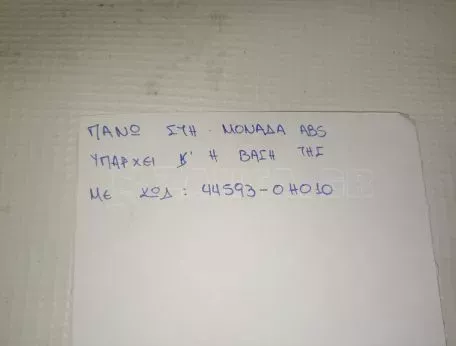 ΠΑΝΩ ΣΤΗ ΜΟΝΑΔΑ ABS
ΥΠΑΡΧΕΙ Κ' Η ΒΑΣΗ ΤΗΣ
ΜΕ ΚΩΔ: 44593-0H010